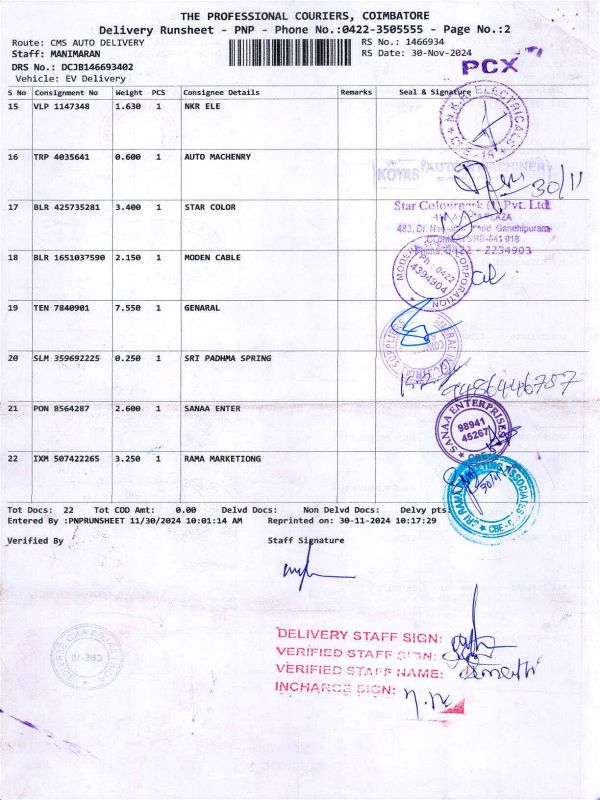 THE PROFESSIONAL COURIERS, COIMBATORE
Delivery Runsheet - PNP - Phone No.:0422-3505555 - Page No.:2
Route: CMS AUTO DELIVERY RS No.: 1466934
Staff: MANIMARAN RS Date: 30-Nov-2024
DRS No.: DCJB146693402 PCX
Vehicle: EV Delivery
S No Consignment No Weight PCS Consignee Details Remarks Seal & Signature
15 VLP 1147348 1.630 1 NKR ELE
N.K.R. ELECTRICALS
16 TRP 4035641 0.600 1 AUTO MACHENRY
KOYAS AUTO MACHINERY
30/11
17 BLR 425735281 3.400 1 STAR COLOR
Star Colourpark Pvt. Ltd
PLAZA
483, Dr. Road Gandhipuram
641 018
Phone: 0422 - 2234903
18 BLR 1651037590 2.150 1 MODEN CABLE
MODERN CORPORATION
Ph : 0422
4394904
19 TEN 7840901 7.550 1 GENARAL
20 SLM 359692225 0.250 1 SRI PADHMA SPRING
9486446757
21 PON 8564287 2.600 1 SANAA ENTER
SANAA ENTERPRISES
98941
45267
22 IXM 507422265 3.250 1 RAMA MARKETIONG
SRI RAMA MARKETING ASSOCIATES
30/11
CBE
Tot Docs: 22 Tot COD Amt: 0.00 Delvd Docs: Non Delvd Docs: Delvy pts:
Entered By :PNPRUNSHEET 11/30/2024 10:01:14 AM Reprinted on: 30-11-2024 10:17:29
Verified By Staff Signature
DELIVERY STAFF SIGN:
VERIFIED STAFF SIGN:
VERIFIED STAFF NAME:
INCHARGE SIGN:
CBE-18